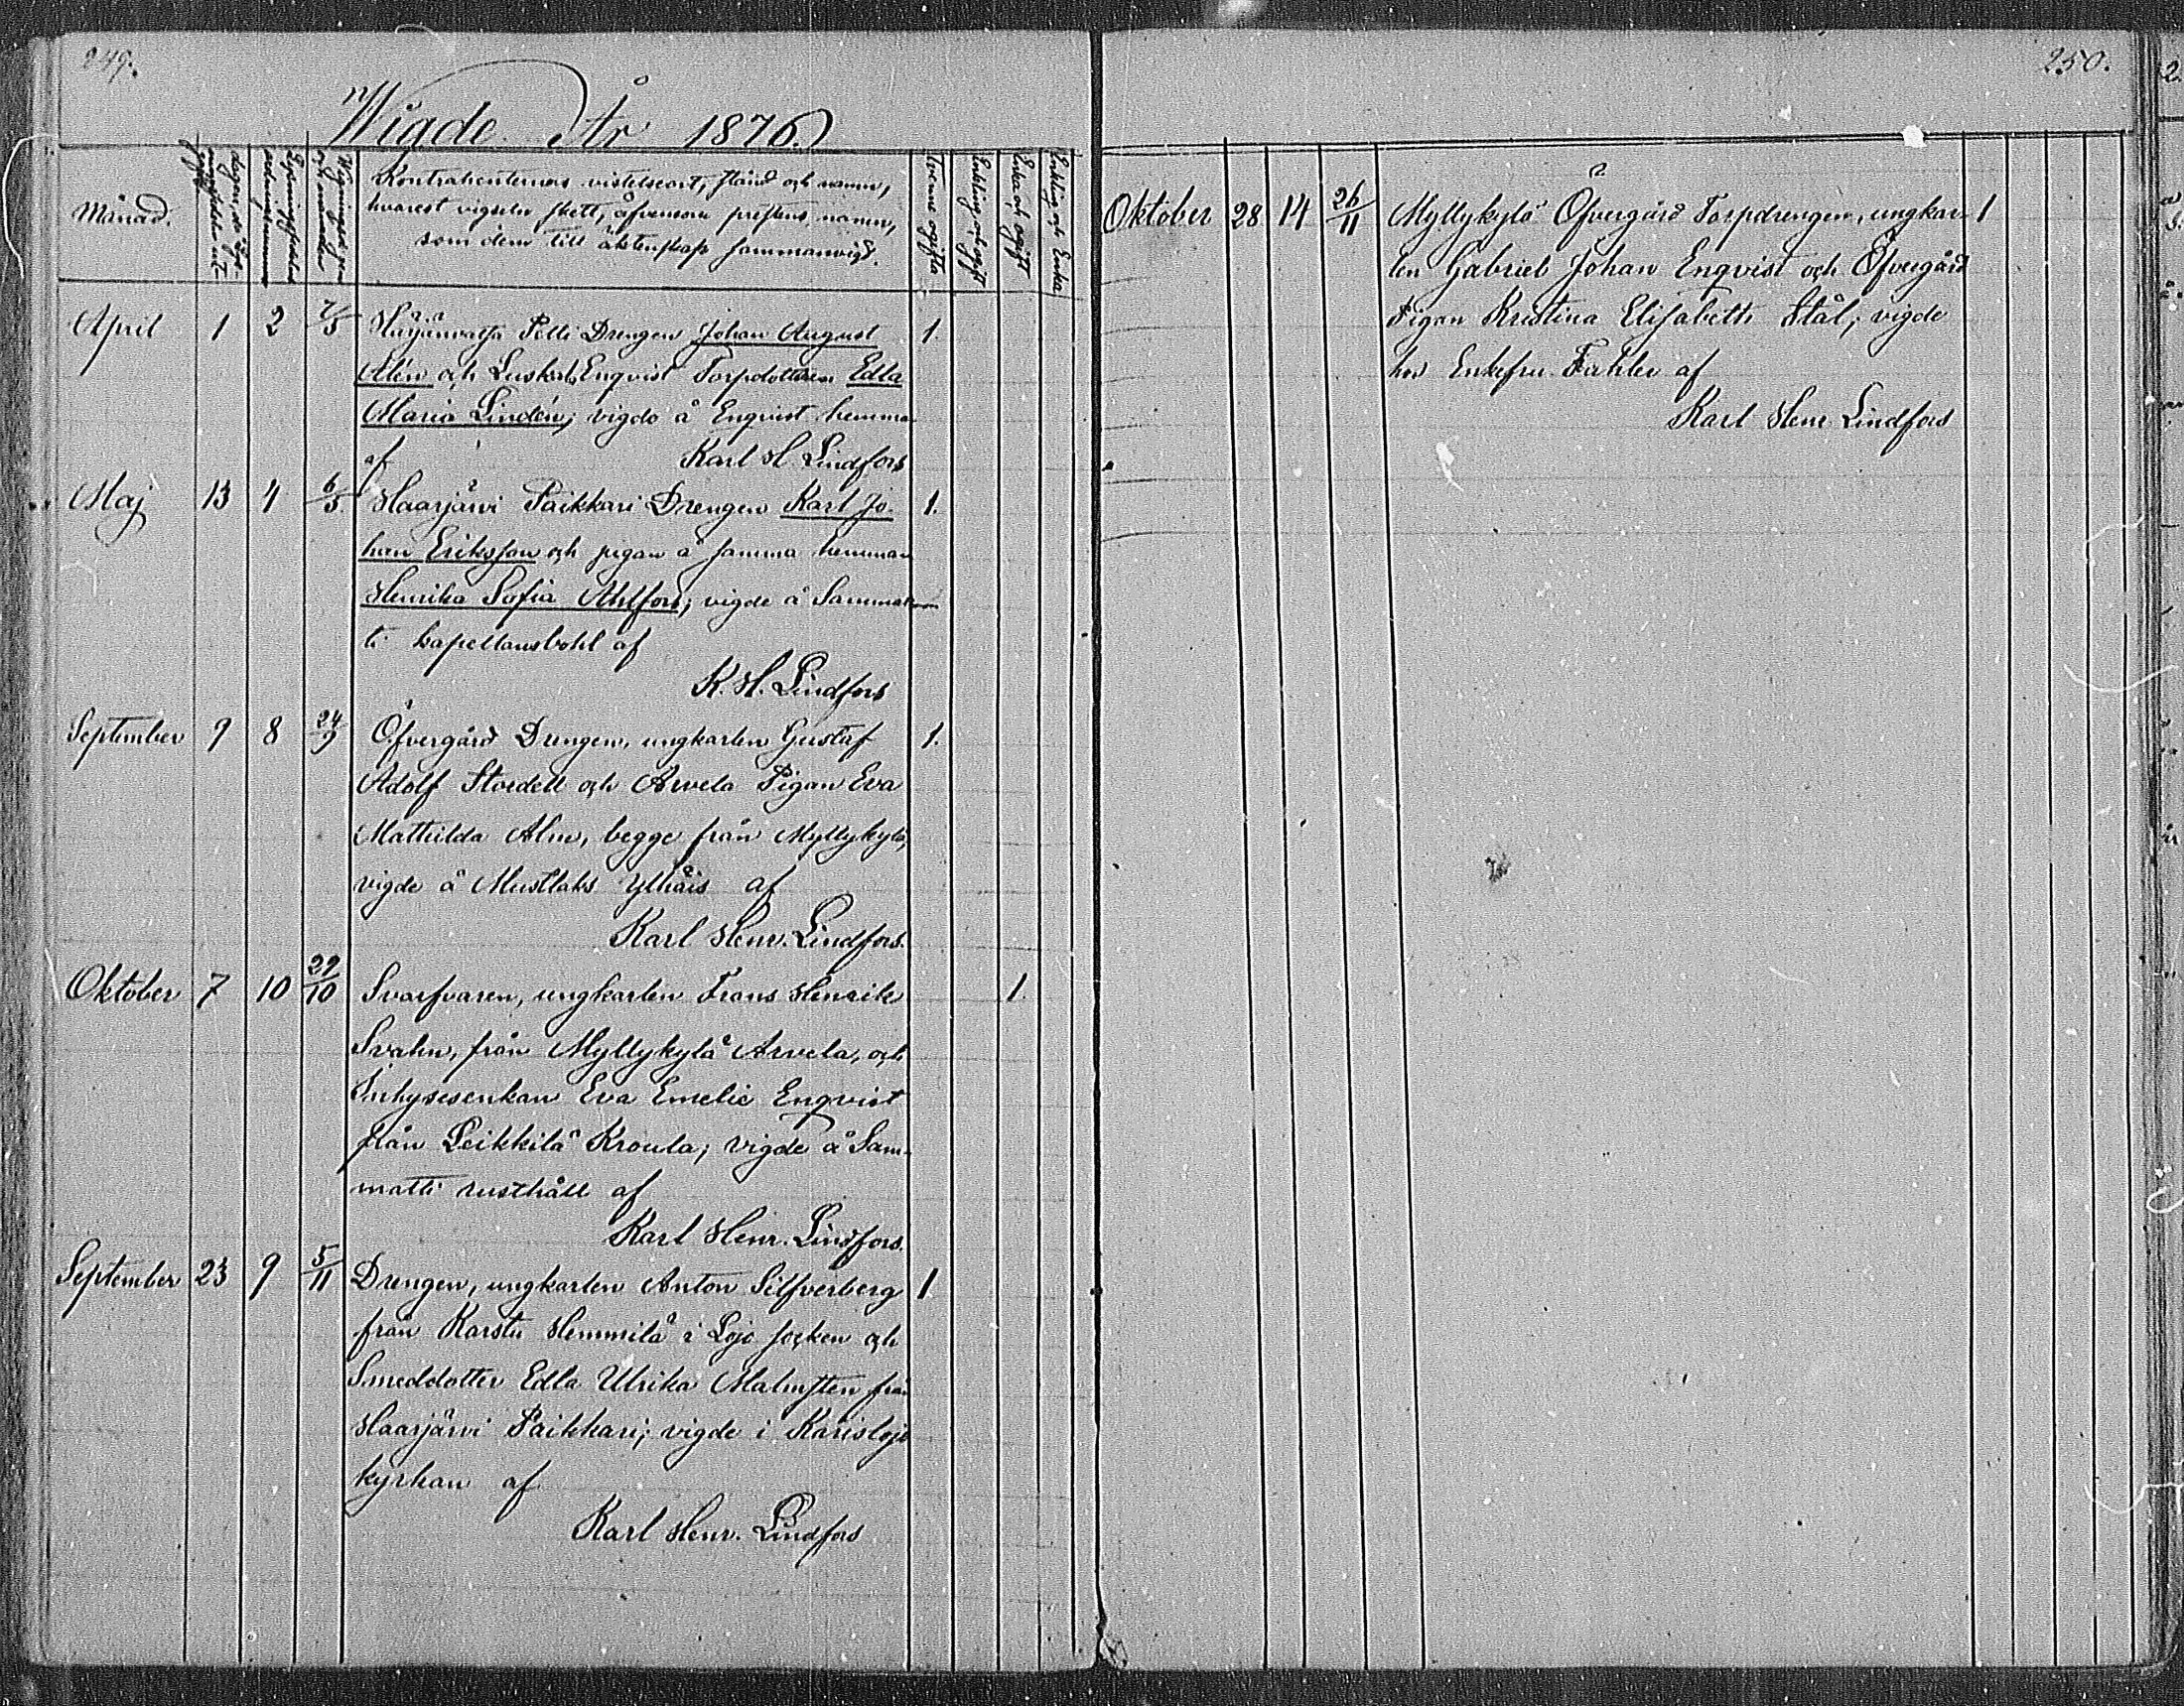 249.
Wigde År 1876.
Månad.
Kontrahenternas vistelseort, stånd och namn,
hvarest vigseln skett, äfvensom prestens namn,
som dem till äktenskap sammanvigt.
Tvenne ogifta
Enkling och ogift
Enka och ogift
Enkling och Enka
April 1 2 7/5 Härjänvatsa Petti Drengen Johan August 1.
Alén och Luskala Enqvist Torpdottren Edla
Maria Lindén; vigde å Enqvist hemman
af Karl H. Lindfors
Maj 13 4 6/5. Haarjärvi Paikkari Drengen Karl Jo- 1.
han Eriksson och pigan å samma hemman
Henrika Sofia Ahlfors; vigde å Samma
ti kapellansbohl af
K. H. Lindfors
September 9 8 24/9 Öfvergård Drengen, ungkarlen Gustaf 1.
Adolf Stordell och Arvela Pigan Eva
Mathilda Alm, begge från Myllykylä,
vigde å Mustlaks Ylhäis af
Karl Henr. Lindfors.
Oktober 7 10 29/10 Svarfvaren, ungkarlen Frans Henrik 1.
Svahn, från Myllykylä Arvela, och
Inhysesenkan Eva Emelie Enqvist
från Leikkilä Kroula; vigde å Sam-
matti rusthåll af
Karl Henr. Lindfors.
September 23 9 5/11 Drengen, ungkarlen Anton Silfverberg 1
från Karstu Hemmilä i Lojo socken och
Smeddotter Edla Ulrika Malmsten från
Haarjärvi Paikkari; vigde i Karislojo
kyrkan af
Karl Henr. Lindfors
250.
Oktober 28 14 26/11 Myllykylä Öfvergård Torpdrengen, ungkar- 1
len Gabriel Johan Enqvist och Öfvergård
Pigan Kristina Elisabeth Stål; vigde
hos Enkefru Fahler af
Karl Henr Lindfors